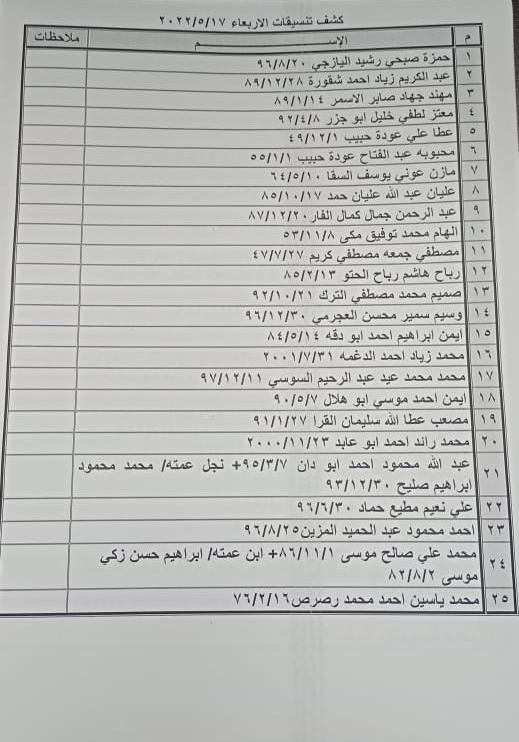 كشف تنسيقات الاربعاء ٢٠٢٢/٥/١٧
م الإســـم ملاحظات
١ حمزة صبحي رشيد اليازجي ٩٦/٨/٢٠
٢ عبد الكريم زياد احمد شقورة ٨٩/١٢/٢٨
٣ مهند جهاد صابر الاسمر ٨٩/١/١٤
٤ معتز لطفي خليل ابو جزر ٩٢/٤/٨
٥ عطا علي عودة حبيب ٤٩/١٢/١
٦ محبوبه عبد الفتاح عودة حبيب ٥٥/١/١
٧ مازن عوني يوسف السقا ٦٤/٥/١٠
٨ عليان عبد الله عليان حمد ٨٥/١٠/١٧
٩ عبد الرحمن جمال كمال الفار ٨٧/١٢/٢٠
١٠ الهام محمد توفيق مكي ٥٣/١١/٨
١١ مصطفي جمعه مصطفي كريم ٤٧/٧/٢٧
١٢ رباح هاشم رباح الحتو ٨٥/٢/١٣
١٣ صميم محمد مصطفي الترك ٩٢/١٠/٢١
١٤ وسيم سمير محسن العجرمي ٩٦/١٢/٣٠
١٥ ايمن ابراهيم احمد ابو دقه ٨٤/٥/١٤
١٦ محمد زياد احمد الدغمه ٢٠٠١/٧/٣١
١٧ محمد محمد عيد عبد الرحيم السوسي ٩٧/١٢/١١
١٨ ايمن احمد موسي ابو هلال ٩٠/٥/٧
١٩ مصعب عطا الله سليمان القرا ٩١/١/٢٧
٢٠ محمد رائد احمد ابو عابد ٢٠٠٠/١١/٢٣
٢١ عبد الله محمود احمد ابو دان ٩٥/٣/٧+ نجل عمته/ محمد محمود
ابراهيم صليح ٩٣/١٢/٣٠
٢٢ علي نعيم مطيع حماد ٩٦/٦/٣٠
٢٣ احمد محمود عبد الحميد المزين٩٦/٨/٢٥
٢٤ محمد علي صالح موسى ٨٦/١١/١+ ابن عمته/ ابراهيم حسن زكي
موسى ٨٢/٨/٢
٢٥ محمد ياسين احمد محمد رصرص٧٦/٢/١٦